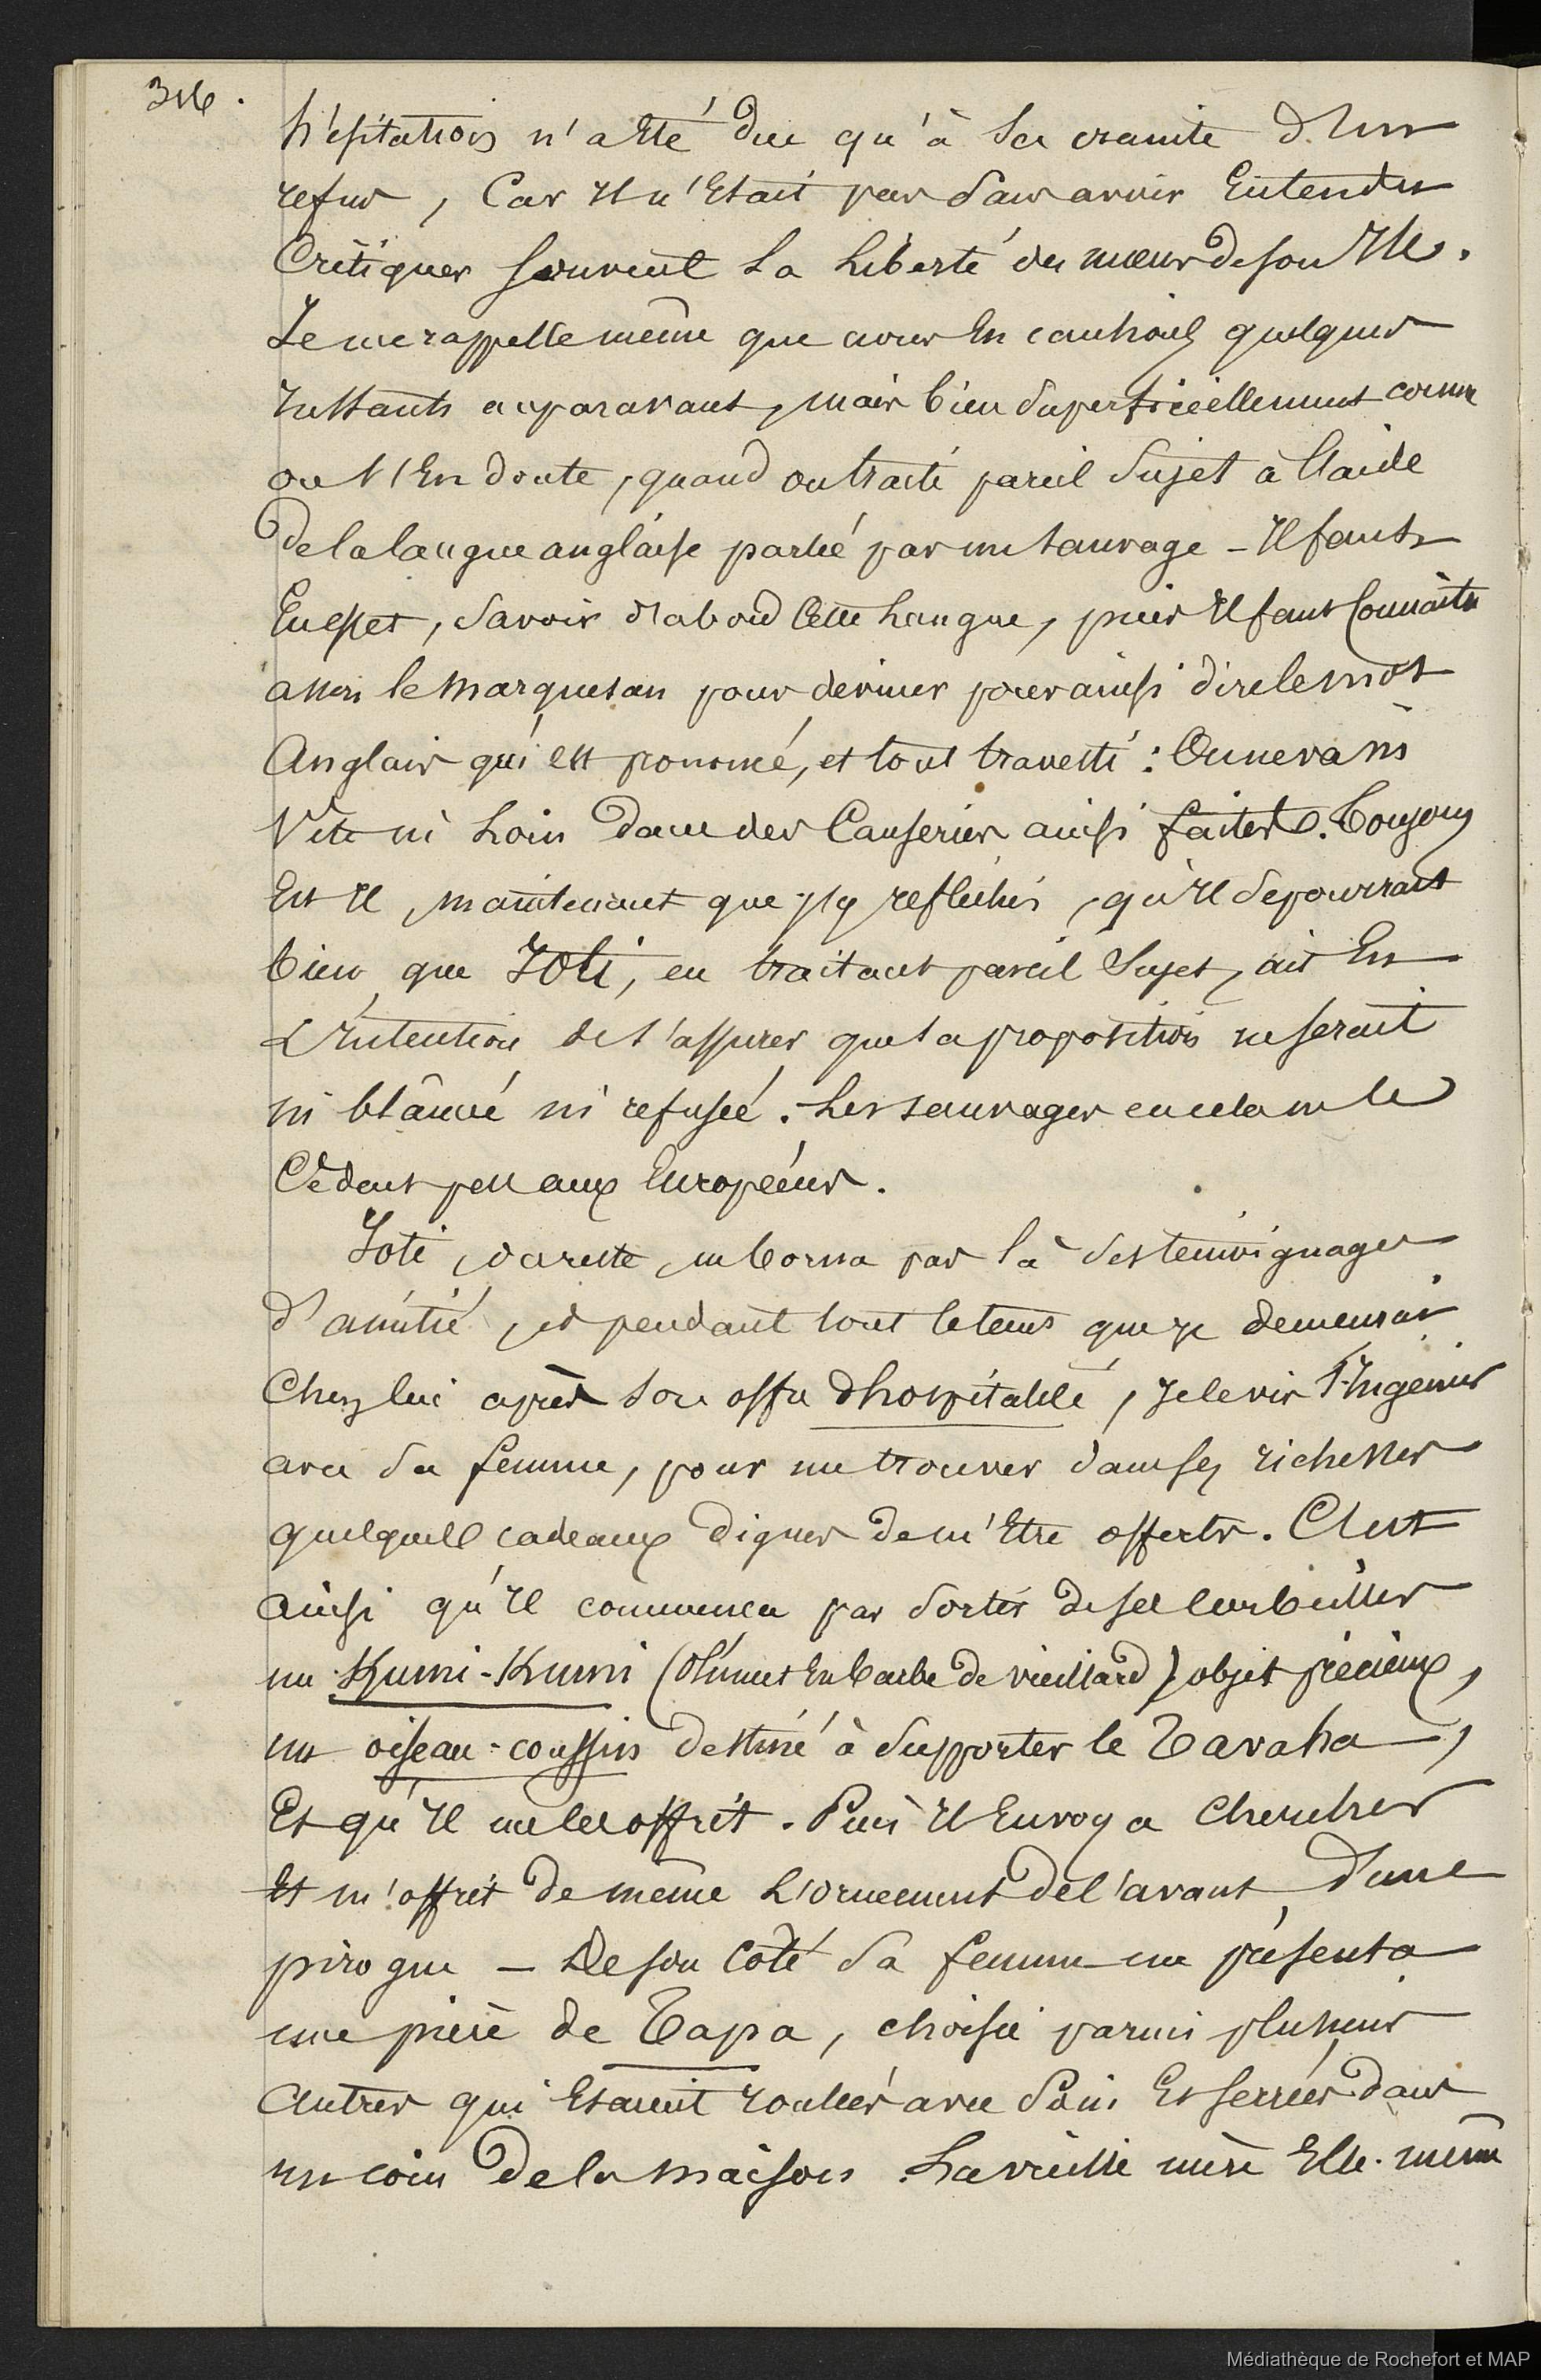 316.
hésitation n'a été due qu'à la crainte d'un
refus, Car Il n'Etait pas Sans avoir Entendu
Critiquer souvent La Liberté des mœurs de son Ile.
Je me rappelle même que nous En causions quelques
Instants auparavant, mais bien Superficiellement comme
on s'En doute, quand on traite pareil Sujet à l'aide
de la langue anglaise parlée par un sauvage - Il faut
En effet, Savoir d'abord Cette Langue, puis Il faut Connaitre
assez le marquesan pour deviner pour ainsi dire le mot
Anglais qui est prononcé, et tout travesti : On ne va ni
Vite ni Loin dans des Causeries ainsi faites. Toujours
Est Il, maintenant que j'y réfléchis, qu'Il se pourrait
bien que Ioti, en traitant pareil Sujet, ait Eu
L'Intention de s'assurer que sa proposition ne serait
ni blâmée ni refusée. Les sauvages en cela ne le
Cèdent peu aux Européens.
Ioti, du reste, ne borna pas là ses témoignages
d'amitié, et pendant tout le tems que je demeurai
Chez lui après son offre d'hospitalité, Je le vis s'Ingénier
avec Sa femme, pour me trouver dans ses richesses
quelques cadeaux dignes de m'Etre offerts. C'est
ainsi qu'Il commença par Sortir de ses corbeilles
un Kumi-Kumi (Plumet En barbe de vieillard) objet précieux,
un oiseau-coussin destiné à Supporter le Tavaha,
Et qu'Il me les offrit. Puis Il Envoya Chercher
Et m'offrit de même L'ornement de l'avant d'une
pirogue - De son Côté Sa femme me présenta
une pièce de Tapa, choisie parmi plusieurs
Autres qui Etaient roulées avec Soin Et serrées dans
un coin de la maison. La vieille mère Elle-même
Médiathèque de Rochefort et MAP